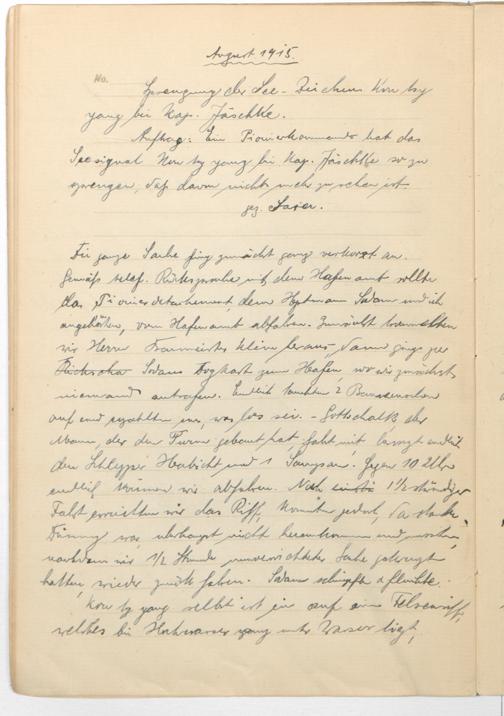 August 1915.
No.
Sprengung der See-Zeichens Kou ty
yang bei Kap. Jäschke.
Auftrag: Ein Pionierkommando hat das
Seesignal Kou ty yang bei Kap. Jäschke so zu
sprengen, daß davon nichts mehr zu sehen ist
gez. Saxer.
Die ganze Sache fing zunächst ganz verkorxt an.
Gemäß telef. Rücksprache mit dem Hafenamt sollte
das Pionierdetachement, dem Hptmann Sodan und ich
angehörten, vom Hafenamt abfahren. Zunächst trommelten
wir Herrn Baumeister Klein heraus, dann gings per
Rickscha Sodans Dogkart zum Hafen, wo wir zunächst
niemand antrafen. Endlich tauchten 2
auf und erzählten uns, was los sei. - Gottschalk, der
Mann, der den Turm gebaut hat, fährt mit, besorgt endlich
den Schlepper Habicht und 1 Sampan. Gegen 10 Uhr
endlich können wir abfahren. Nach 1 1/2 stündiger
Fahrt erreichten wir das Riff, konnten jedoch, da starke
Dünung war, überhaupt nicht herankommen und mußten,
nachdem wir 1/2 Stunde unverrichteter Sache gekreuzt
hatten, wieder zurück fahren. Sodan schimpfte u fluchte.
Kou ty yang selbst ist ein auf ein Felsenriff,
welches bei Hochwasser ganz unter Wasser liegt,